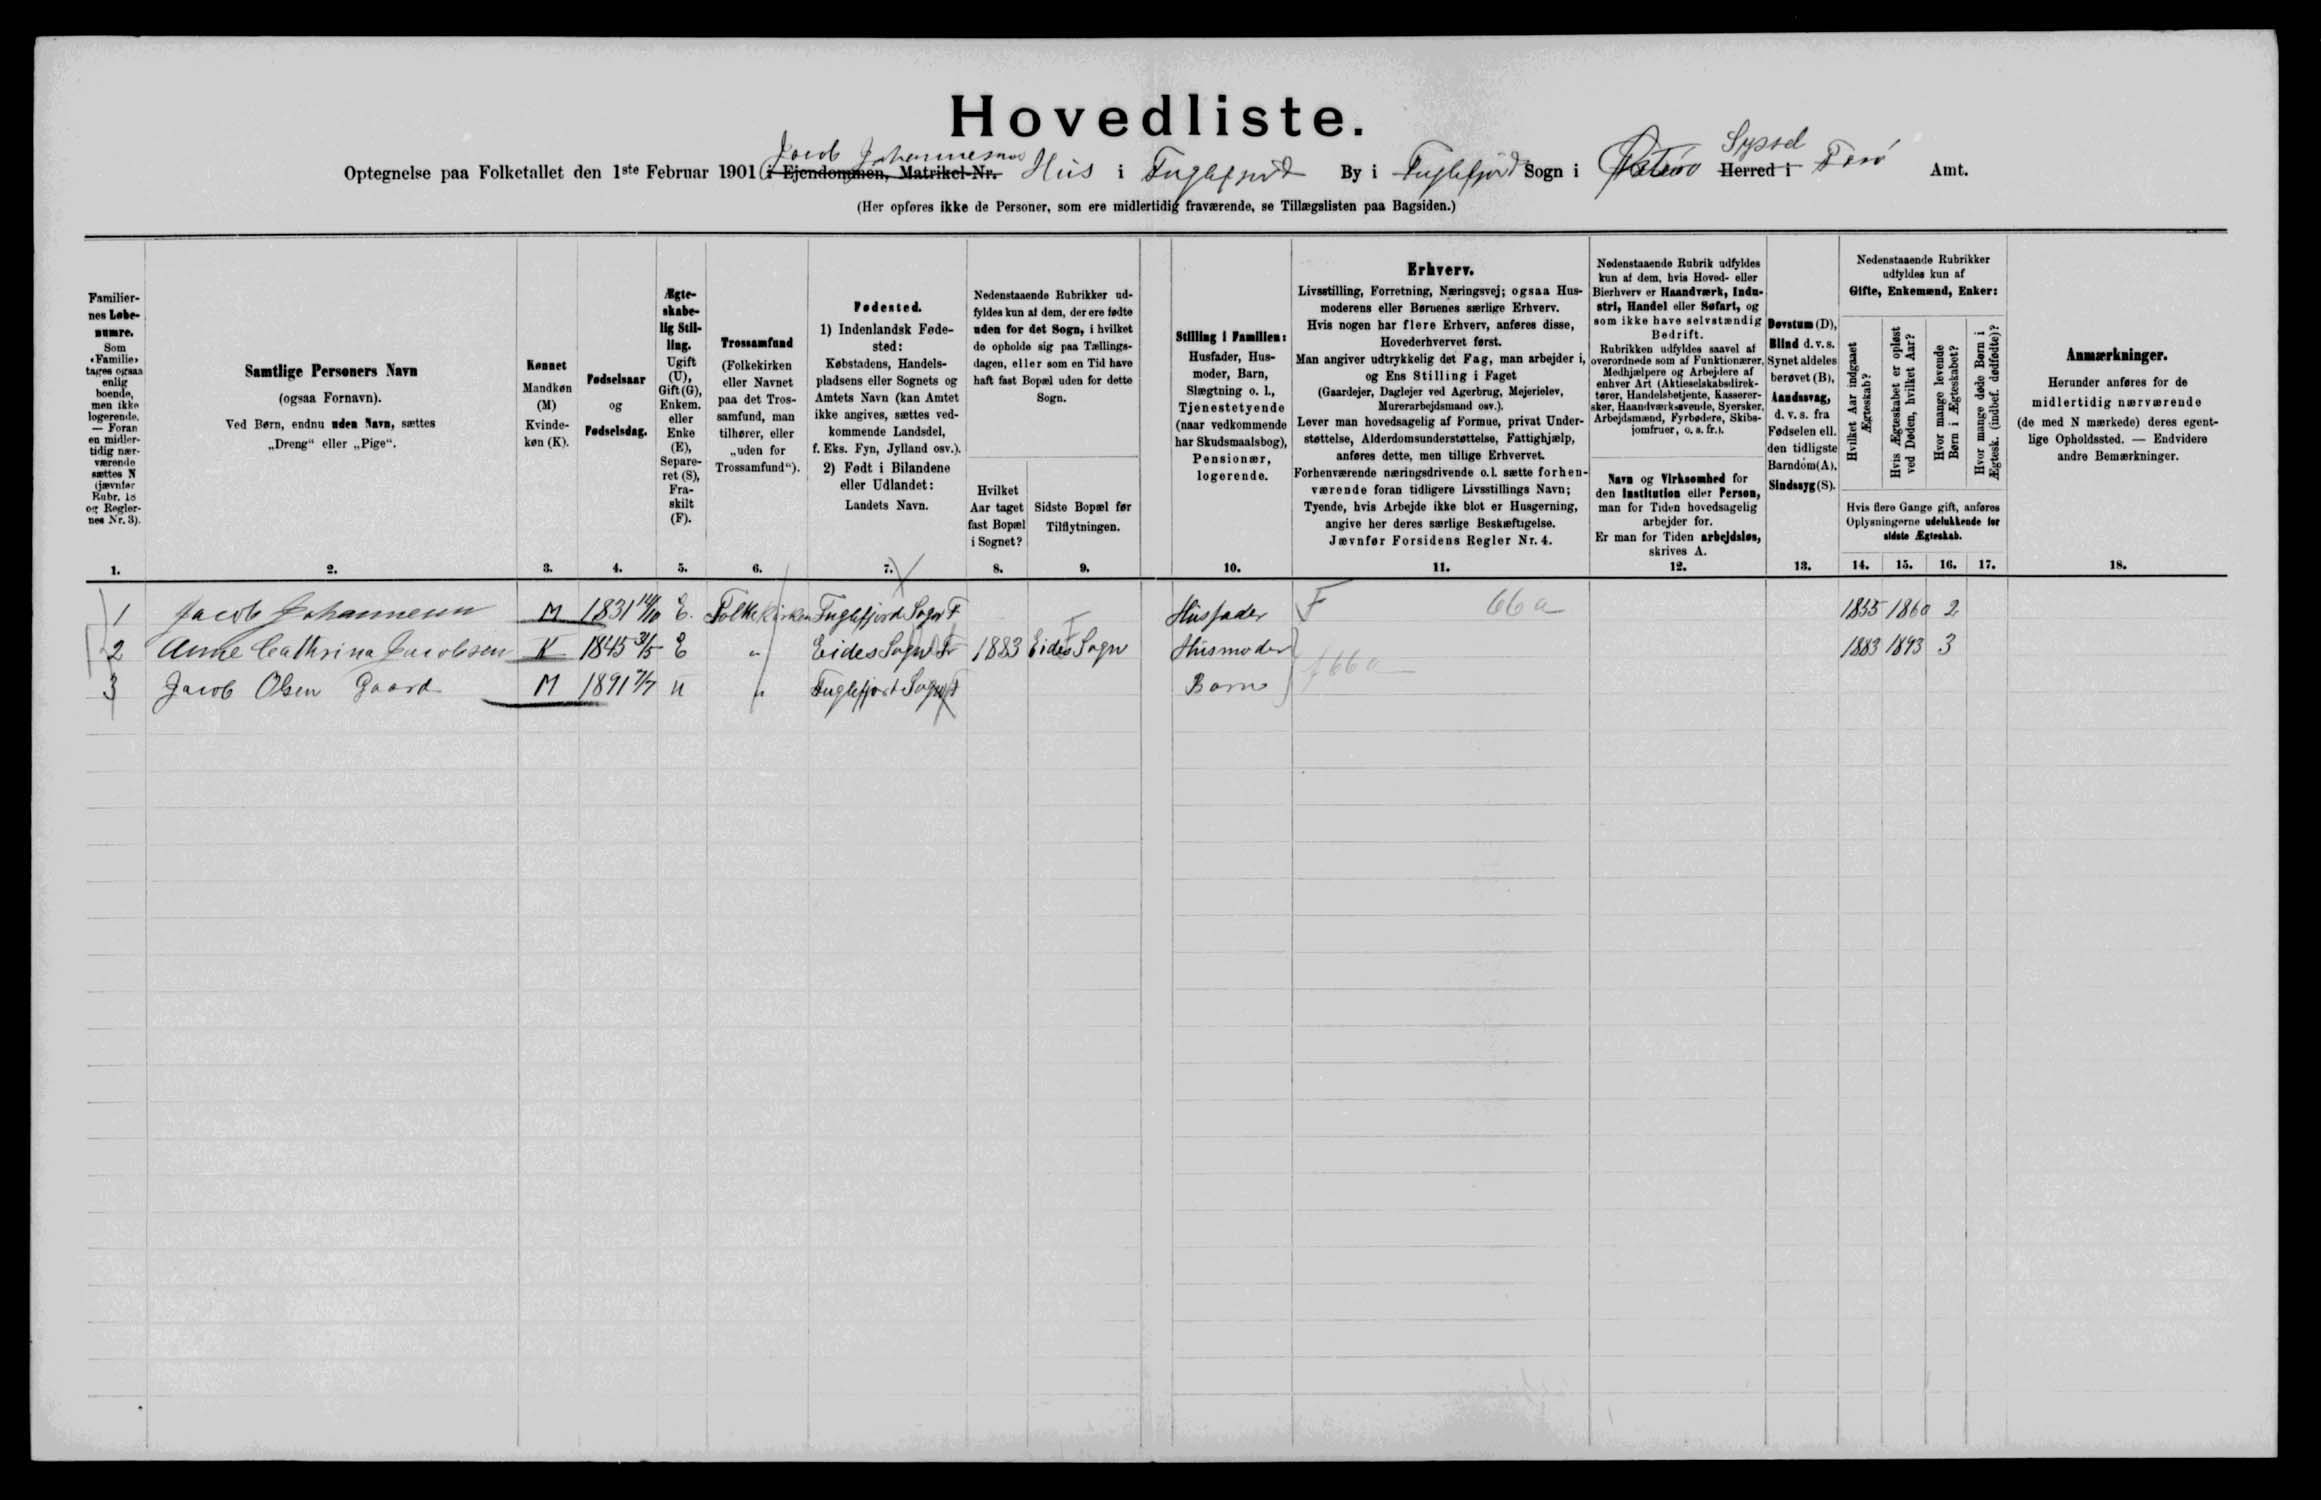 Hovedliste.
Jacob Johannesens Syssel
Optegnelse paa Folketallet den 1ste Februar 1901 i Ejendommen, Matrikel-Nr. Hus i Fuglefjord By i Fuglefjord Sogn i Østerø Herred i Færø Amt.
(Her opføres ikke de Personer, som ere midlertidig fraværende, se Tillægslisten paa Bagsiden.)
Familiernes Løbenumre.
Som «Familie» tages ogsaa enlig boende, men ikke logerende. — Foran en midlertidig nærværende sættes N (jævnfør Rubr. 18 og Reglernes Nr. 3).
1.
Samtlige Personers Navn
(ogsaa Fornavn).
Ved Børn, endnu uden Navn, sættes
„Dreng“ eller „Pige“.
2.
Kønnet
Mandkøn (M)
Kvindekøn (K).
3.
Fødselsaar
og
Fødselsdag.
4.
Ægteskabelig Stilling.
Ugift (U), Gift (G), Enkem. eller Enke (E), Separeret (S), Fraskilt (F).
5.
Trossamfund
(Folkekirken eller Navnet paa det Trossamfund, man tilhører, eller „uden for Trossamfund“).
6.
Fødested.
1) Indenlandsk Fødested:
Købstadens, Handelspladsens eller Sognets og Amtets Navn (kan Amtet ikke angives, sættes vedkommende Landsdel, f. Eks. Fyn, Jylland osv.).
2) Født i Bilandene eller Udlandet:
Landets Navn.
7.
Nedenstaaende Rubrikker udfyldes kun af dem, der ere fødte uden for det Sogn, i hvilket de opholde sig paa Tællingsdagen, eller som en Tid have haft fast Bopæl uden for dette Sogn.
Hvilket Aar taget fast Bopæl i Sognet?
8.
Sidste Bopæl før Tilflytningen.
9.
Stilling i Familien:
Husfader, Husmoder, Barn, Slægtning o. l., Tjenestetyende (naar vedkommende har Skudsmaalsbog), Pensionær, logerende.
10.
Erhverv.
Livsstilling, Forretning, Næringsvej; ogsaa Husmoderens eller Børnenes særlige Erhverv.
Hvis nogen har flere Erhverv, anføres disse, Hovederhvervet først.
Man angiver udtrykkelig det Fag, man arbejder i, og Ens Stilling i Faget
(Gaardejer, Daglejer ved Agerbrug, Mejerielev, Murerarbejdsmand osv.).
Lever man hovedsagelig af Formue, privat Understøttelse, Alderdomsunderstøttelse, Fattighjælp, anføres dette, men tillige Erhvervet.
Forhenværende næringsdrivende o. l. sætte forhenværende foran tidligere Livsstillings Navn;
Tyende, hvis Arbejde ikke blot er Husgerning, angive her deres særlige Beskæftigelse.
Jævnfør Forsidens Regler Nr. 4.
11.
Nedenstaaende Rubrik udfyldes kun af dem, hvis Hoved- eller Bierhverv er Haandværk, Industri, Handel eller Søfart, og som ikke have selvstændig Bedrift.
Rubrikken udfyldes saavel af overordnede som af Funktionærer, Medhjælpere og Arbejdere af enhver Art (Aktieselskabsdirektører, Handelsbetjente, Kasserersker, Haandværksvende, Syersker, Arbejdsmænd, Fyrbødere, Skibsjomfruer, o. s. fr.).
Navn og Virksomhed for den Institution eller Person, man for Tiden hovedsagelig arbejder for.
Er man for Tiden arbejdsløs, skrives A.
12.
Døvstum (D), Blind d. v. s. Synet aldeles berøvet (B), Aandssvag, d. v. s. fra Fødselen ell. den tidligste Barndom (A), Sindssyg (S).
13.
Nedenstaaende Rubrikker udfyldes kun af
Gifte, Enkemænd, Enker:
Hvilket Aar indgaaet Ægteskab?
Hvis Ægteskabet er opløst ved Døden, hvilket Aar?
Hvor mange levende Børn i Ægteskabet?
Hvor mange døde Børn i Ægtesk. (indbef. dødfødte)?
Hvis flere Gange gift, anføres Oplysningerne udelukkende for sidste Ægteskab.
14. 15. 16. 17.
Anmærkninger.
Herunder anføres for de midlertidig nærværende (de med N mærkede) deres egentlige Opholdssted. — Endvidere andre Bemærkninger.
18.
1 Jacob Johannesen M 1831 14/10 E. Folkekirken Fuglefjord Sogn F Husfader F 66a 1855 1860 2
2 Anne Cathrina Jacobsen K 1845 31/5 E " Eides Sogn Fr 1883 Eides Sogn Husmoder f 66a 1883 1893 3
3 Jacob Olsen Gaard M 1891 7/7 U " Fuglefjord Sogn F Barn